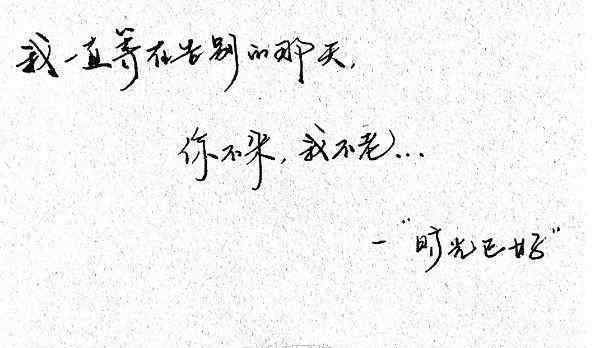 我一直等在告别的那天,
你不来,我不老...
—"时光正好"